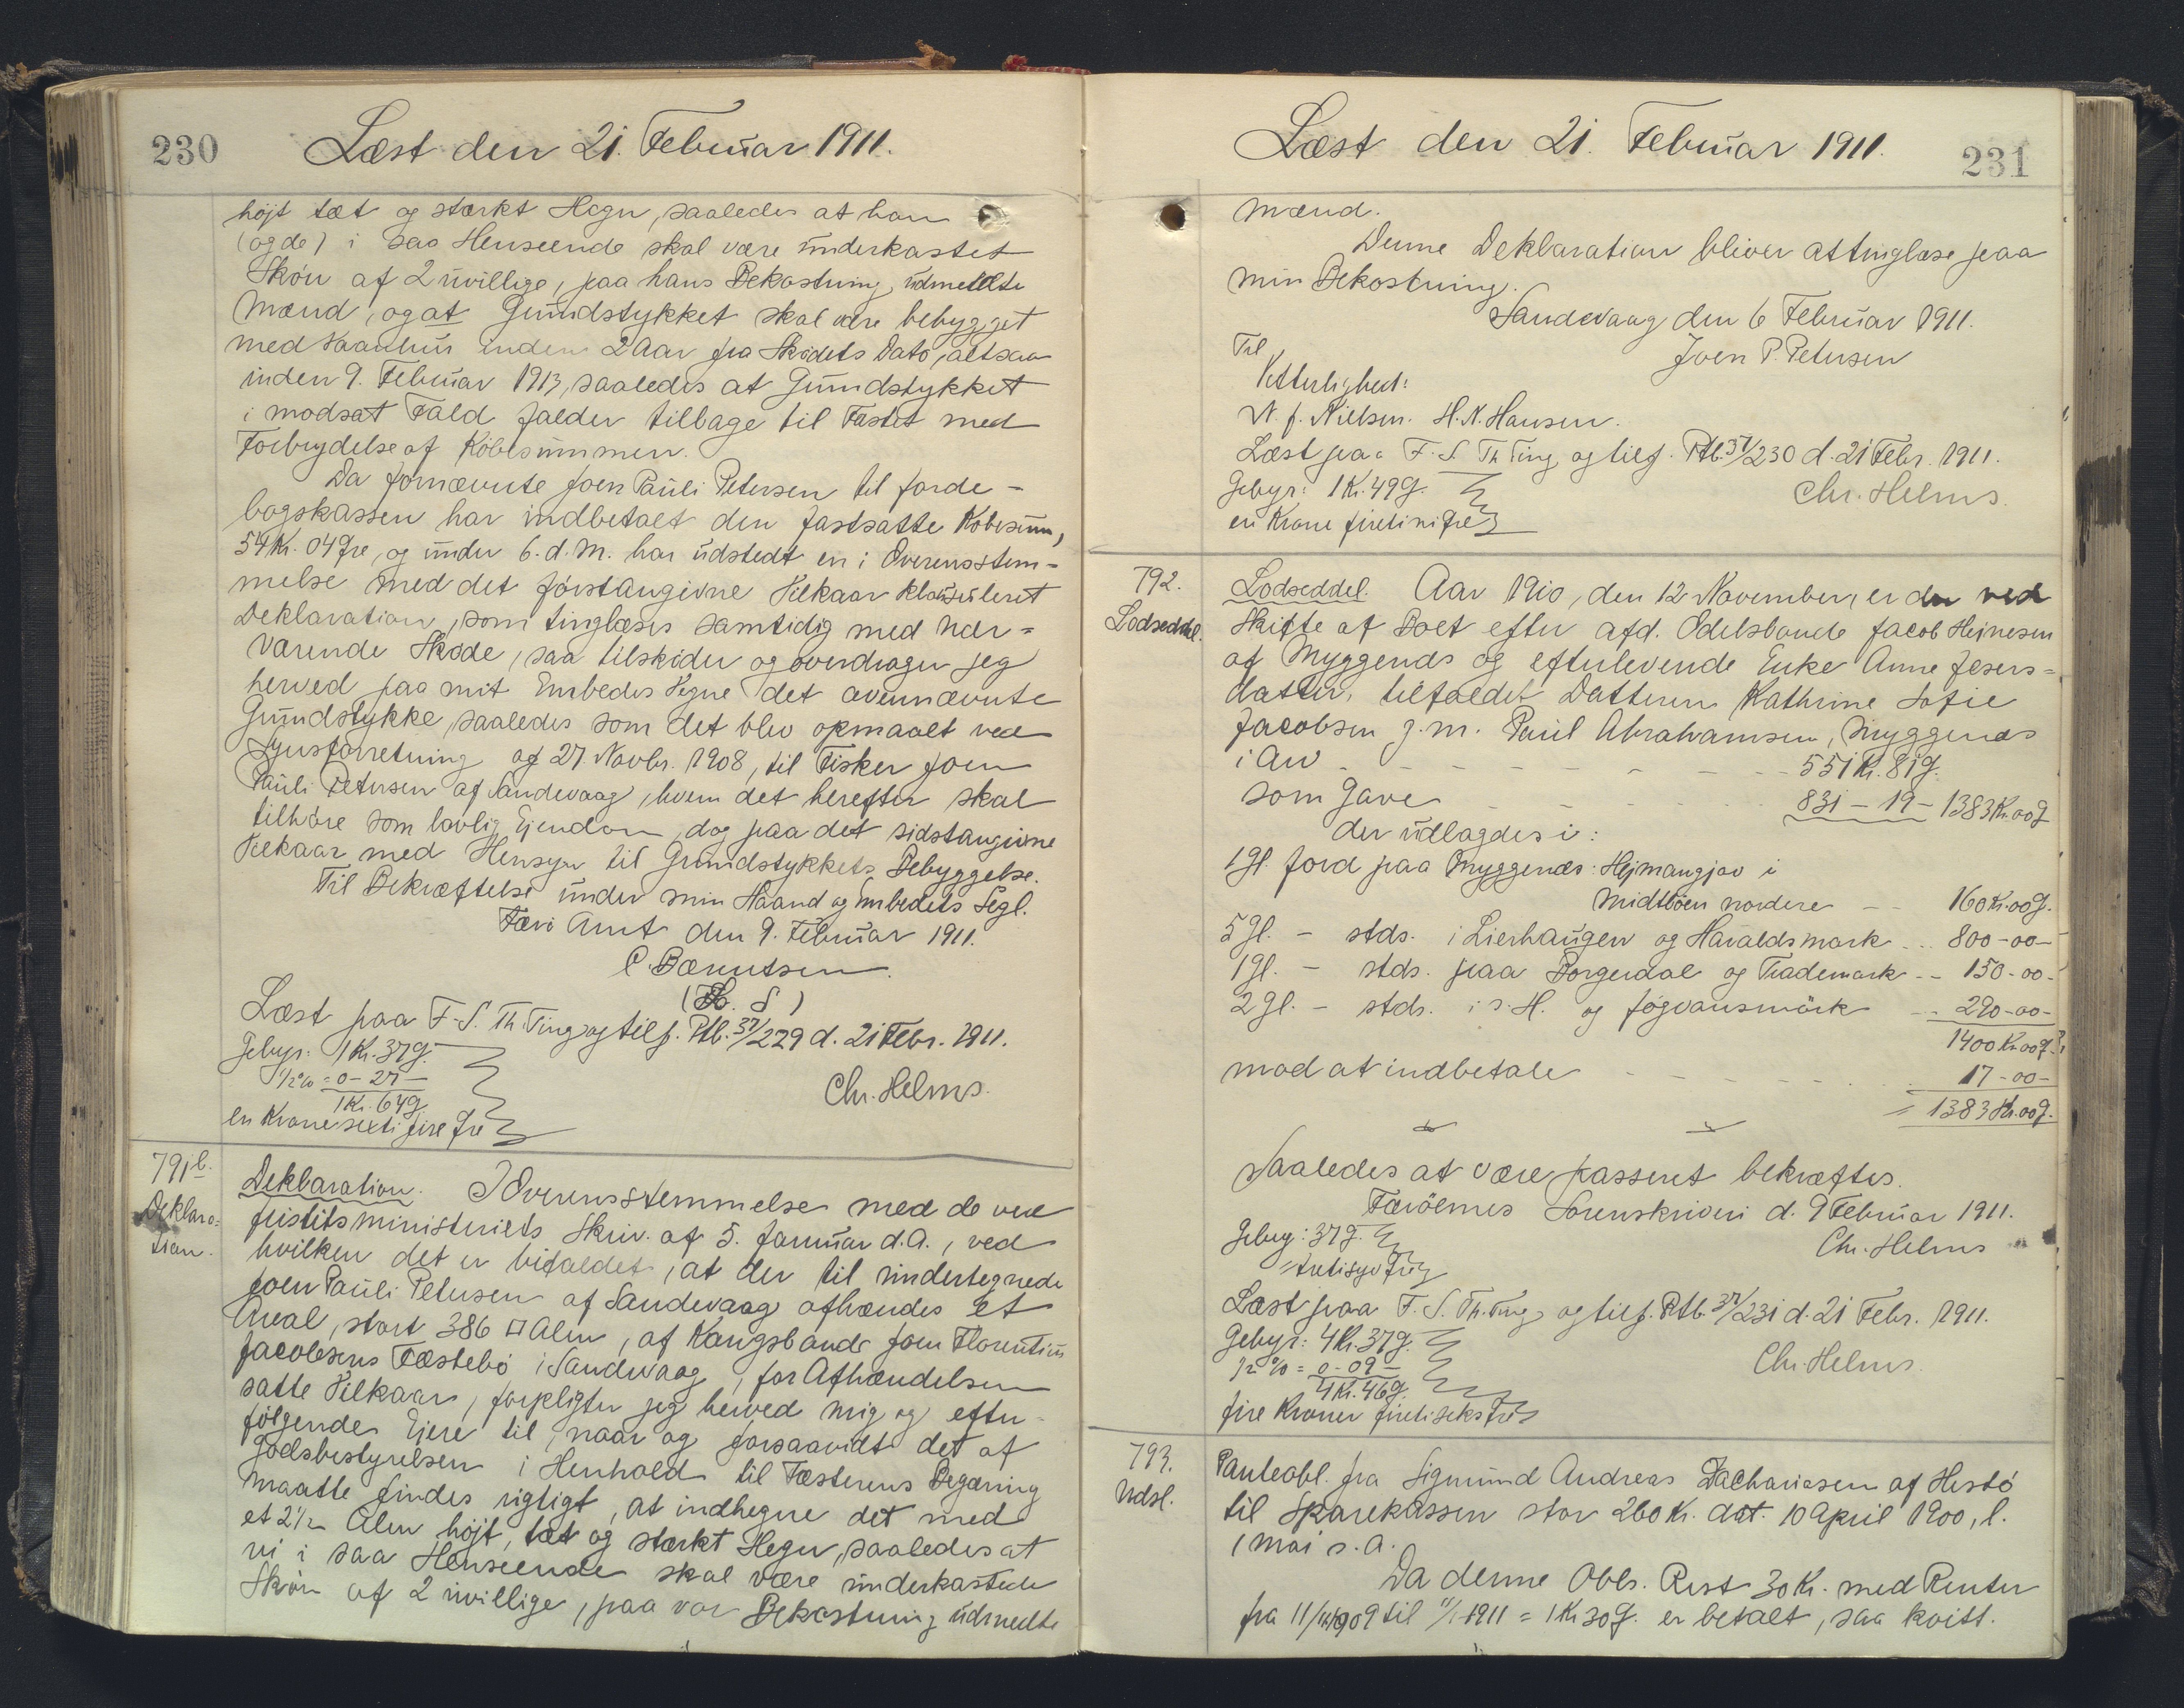 230
Læst den 21. Februar 1911.
højt tæt og stærkt Hegn, saaledes at han
(og de) i saa Henseende skal være underkastet
Skøn af 2 uvillige, paa hans Bekostning, udmeldte
Mænd, og at Grundstykket skal være bebygget
med Vaanhus inden 2 Aar fra Skødets Dato, altsaa
inden 9. Februar 1913, saaledes at Grundstykket
i modsat Fald falder tilbage til Fæstet med
Forbrydelse af Købesummen.
Da fornævnte Joen Pauli Petersen til Jorde-
bogskassen har indbetalt den fastsatte Købesum,
54 Kr. 04 Øre, og under 6. d. M. har udstedt en i Overensstem-
melse med det førstangivne Vilkaar klausuleret
Deklaration, som tinglæses samtidig med nær-
værende Skøde, saa tilskøder og overdrager jeg
herved paa mit Embedes Vegne det ovennævnte
Grundstykke, saaledes som det blev opmaalt ved
Synsforretning af 27. Novbr. 1908, til Fisker Joen
Pauli Petersen af Sandevaag, hvem det herefter skal
tilhøre som lovlig Ejendom, dog paa det sidstangivne
Vilkaar med Hensyn til Grundstykkets Bebyggelse.
Til Bekræftelse under min Haand og Embedets Segl.
Færø Amt den 9. Februar 1911.
C. Bærentsen.
(L. S)
Læst paa F. S. Th. Ting og tilf. Ptb. 37/229 d. 21 Febr. 1911.
Gebyr: 1 Kr. 37 Ø.
1/2 % = 0 - 27 -
1 Kr. 64 Ø
en Krone seksti fire Øre
Chr. Helms.
791 b.
Deklara=
tion.
Deklaration. I Overensstemmelse med de ved
Justitsministeriets Skriv. af 5. Januar d. A., ved
hvilken det er bifaldet, at der til undertegnede
Joen Pauli Petersen af Sandevaag afhændes et
Areal, stort 386 □ Alen, af Kongsbonde Joen Florentius
Jacobsens Fæstebø i Sandevaag, for Afhændelsen
satte Vilkaar, forpligter jeg herved mig og efter-
følgende Ejere til, naar og forsaavidt det af
Godsbestyrelsen i Henhold til Fæsterens Begæring
maatte findes rigtigt, at indhegne det med
et 2 1/2 Alen højt, tæt og stærkt Hegn, saaledes at
vi i saa Henseende skal være underkastede
Skøn af 2 uvillige, paa vor Bekostning udmeldte
Læst den 21. Februar 1911.
231
Mænd.
Denne Deklaration bliver at tinglæse paa
min Bekostning.
Sandevaag den 6 Februar 1911.
Joen P. Petersen
Til
Vitterlighed:
N. J. Nielsen. H. N. Hansen.
Læst paa F. S. Th Ting og tilf. Ptb. 37/230 d. 21 Febr. 1911.
Gebyr: 1 Kr. 49 Ø.
en Krone firetini Øre
Chr. Helms.
792.
Lodseddel.
Lodseddel. Aar 1910, den 12 November, er der ved
Skifte af Boet efter afd. Odelsbonde Jacob Hejnesen
af Myggenæs og efterlevende Enke Anne Jesers=
datter, tilfaldet Datteren Kathrine Sofie
Jacobsen g. m. Paul Abrahamsen, Myggenæs
i Arv - - - - - 551 Kr. 81 Ø.
som Gave - - - 831 - 19 - 1383 Kr. 00 Ø
der udlagdes i:
1 Gl. Jord paa Myggenæs: Hejmangjov i
Midtbøen nordere - - 160 Kr. 00 Ø.
5 Gl. - stds. i Lierhaugen og Haraldsmark - - 800 - 00 -
1 Gl. - stds. paa Borgerdal og Trademark - - 150 - 00 -
2 Gl. - stds. i s. H. og Jógvansmörk - - 290 - 00 -
1400 Kr. 00 Ø.
mod at indbetale - - - - - 17 - 00 -
= 1383 Kr. 00 Ø.
Saaledes at være passeret bekræftes.
Færöernes Sorenskriveri d. 9 Februar 1911.
Chr. Helms
Gebyr: 37 Ø.
=tretisyv Øre
Læst paa F. S. Th. Ting og tilf. Ptb. 37/231 d. 21 Febr. 1911.
Gebyr: 4 Kr. 37 Ø.
1/2 % = 0 - 09 -
4 Kr. 46 Ø.
fire Kroner firetiseks Øre
Chr. Helms.
793.
Udsl.
Panteobl. fra Sigmund Andreas Zachariasen af Hestø
til Sparekassen stor 260 Kr. dat. 10 April 1900, l.
1 Mai s. A.
Da denne Obls. Rest 30 Kr. med Renter
fra 11/12 1909 til 11/1 1911 = 1 Kr 30 Ø. er betalt, saa kvitt.